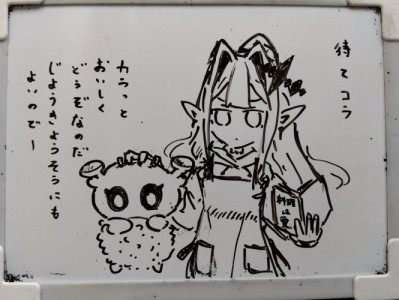 待てコラ
カラっと
おいしく
どうぞなのだ
じようきようそうにも
よいのでー
料理
は